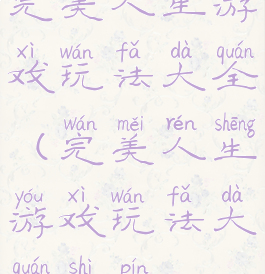 完美人生游
xì wán fǎ dà quán
戏玩法大全
wán měi rén shēng
(完美人生
yóu xì wán fǎ dà
游戏玩法大
quán shì pín